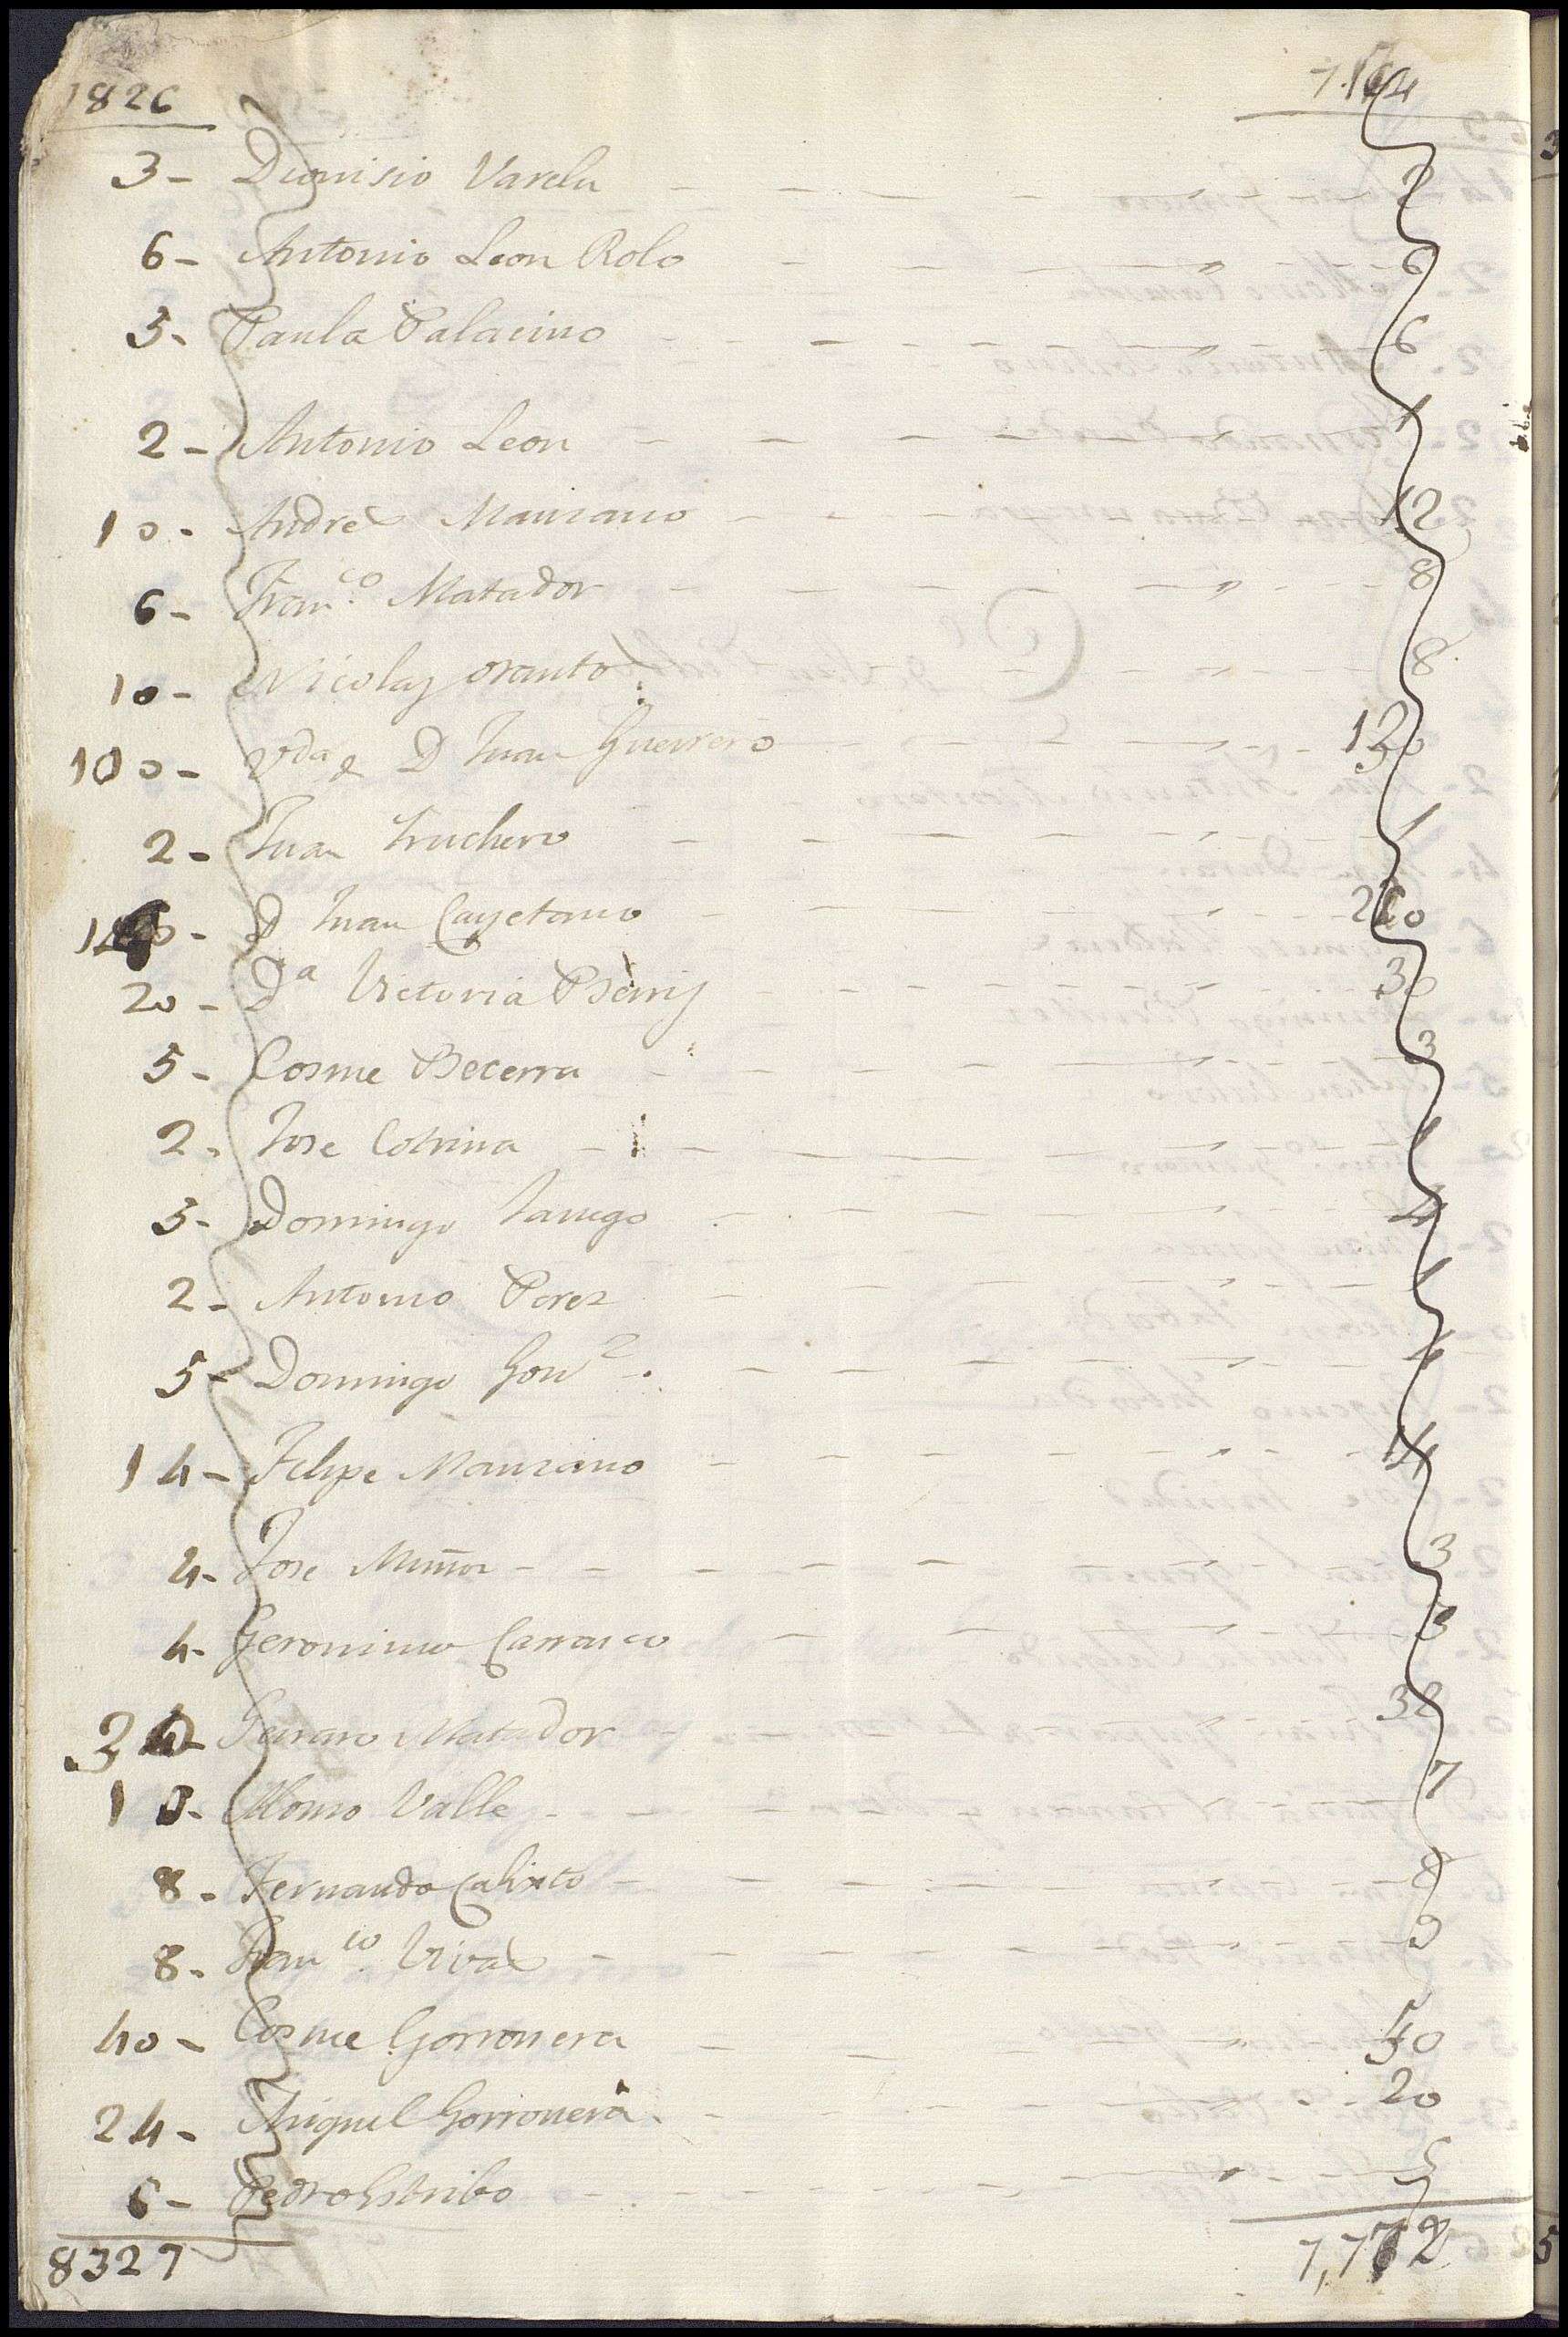 1826
3 - Dionisio Varela - 2
6 - Antonio Leon Rolo - 6
5 - Paula Palacino - 6
2 - Antonio Leon - 1
10 - Andres Manzano - 12
6 - Franco. Matador - 8
10 - Nicolas - 8
100 - Vda de D Juan Guerrero - 120
2 - Juan Truchero - 1
D Juan Cayetano
20 - Da Victoria - 30
5 - Cosme Becerra - 3
2 - Jose Cotrina - 1
5 - Domingo - 4
2 - Antonio Perez - 1
5 - Domingo Gonz. - 4
14 - Felipe Manzano - 14
4 - Jose Muñoz - 3
4 - Geronimo Carrasco - 3
Genaro Matador - 32
Alonso Valle - 7
8 - Fernando Calixto - 8
8 - Franco. Vivas - 9
40 - Cosme Gorronera - 50
24 - Miguel Gorronera - 20
6 - Pedro Estribo - 5
8327 7,772